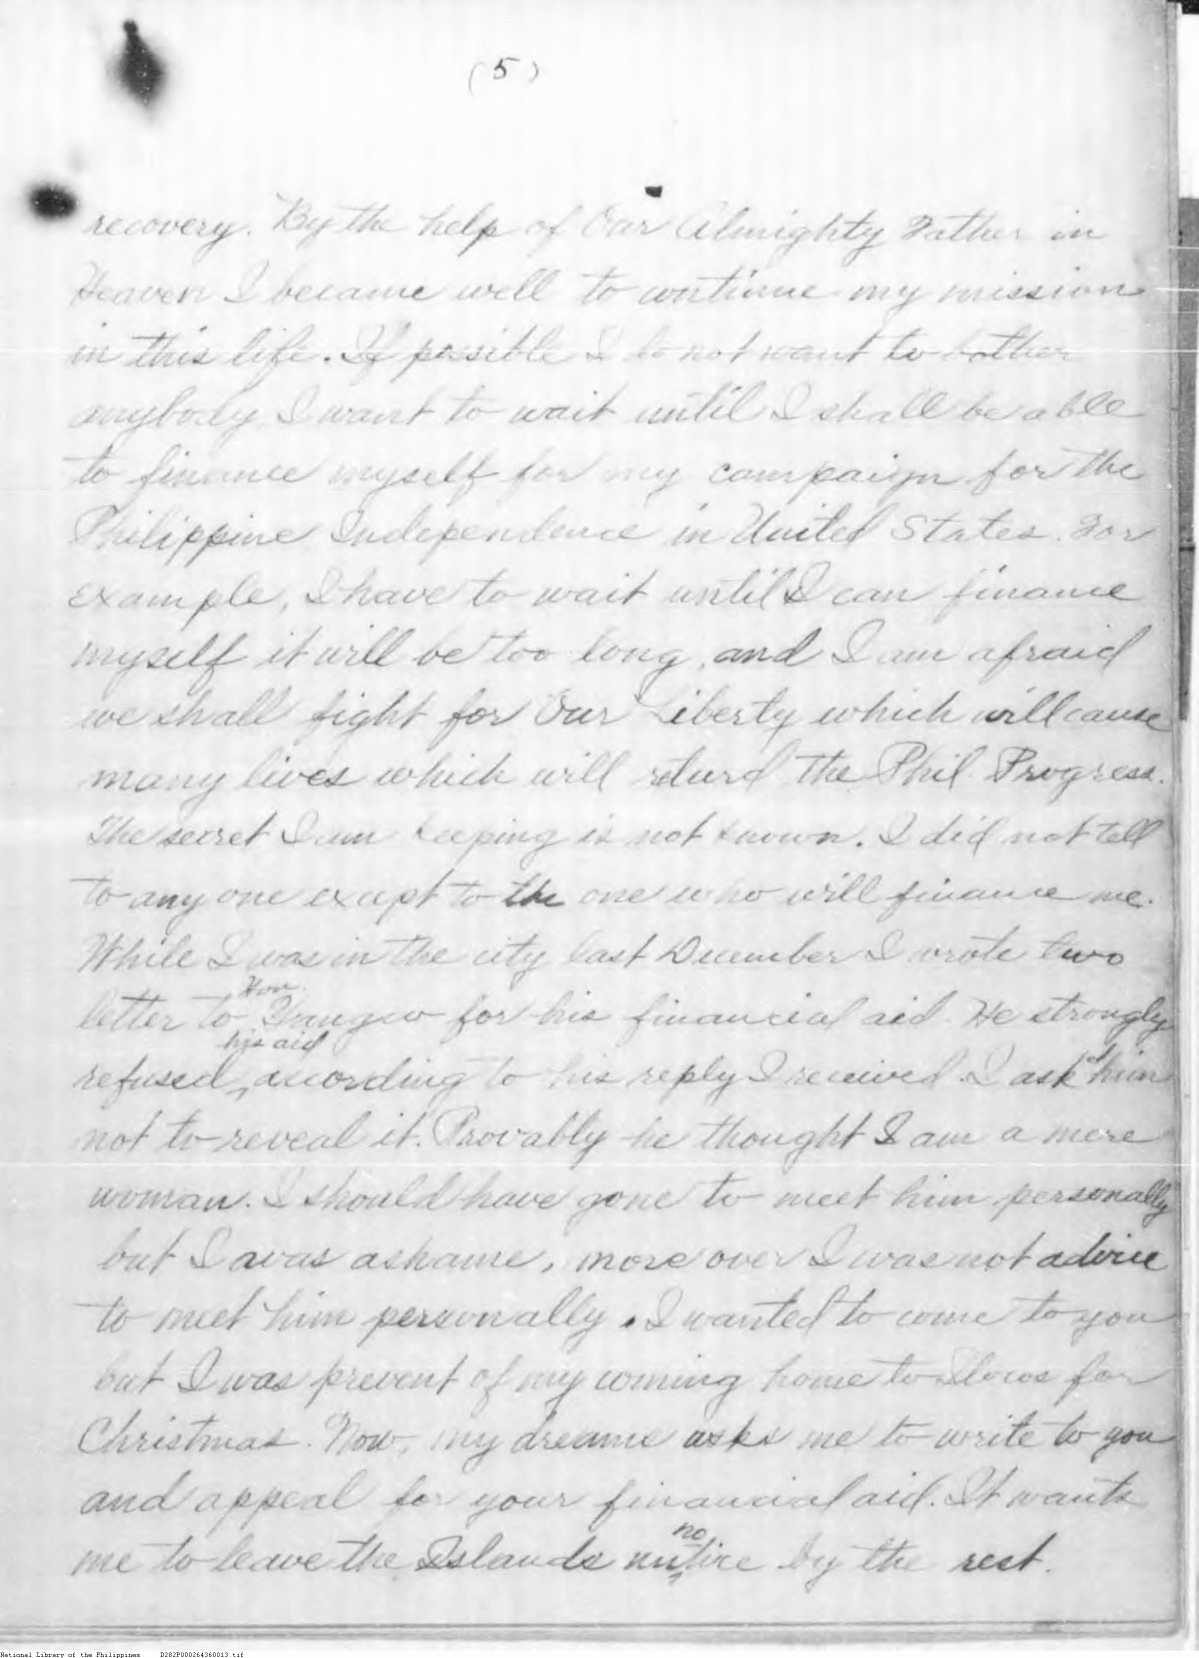 (5)
recovery. By the help of Our Almighty Father in
Heaven I became well to continue my mission
in this life. If possible I do not want to bother
anybody I want to wait until I shall be able
to finance myself for my campaign for the
Philippine Independence in United States. For
example, I have to wait until I can finance
myself it will be too long, and I am afraid
we shall fight for Our Liberty which will cause
many lives which will returd the Phil. Progress.
The secret I am keeping is not known. I did not tell
to any one except to the one who will finance me.
While I was in the city last December I wrote two
Hon.
letter to Yangco for his financial aid. He strongly
his aid
refused, according to his reply I received. I ask of him
not to reveal it. Provably he thought I am a mere
woman. I should have gone to meet him personally
but I was ashame, more over I was not advice
to meet him personally. I wanted to come to you
but I was prevent of my coming home to Ilocos for
Christmas. Now, my dreams asks me to write to you
and appeal for your financial aid. It wants
no
me to leave the Islands by the rest.
National Library of the Philippines D282P000264360013.tif